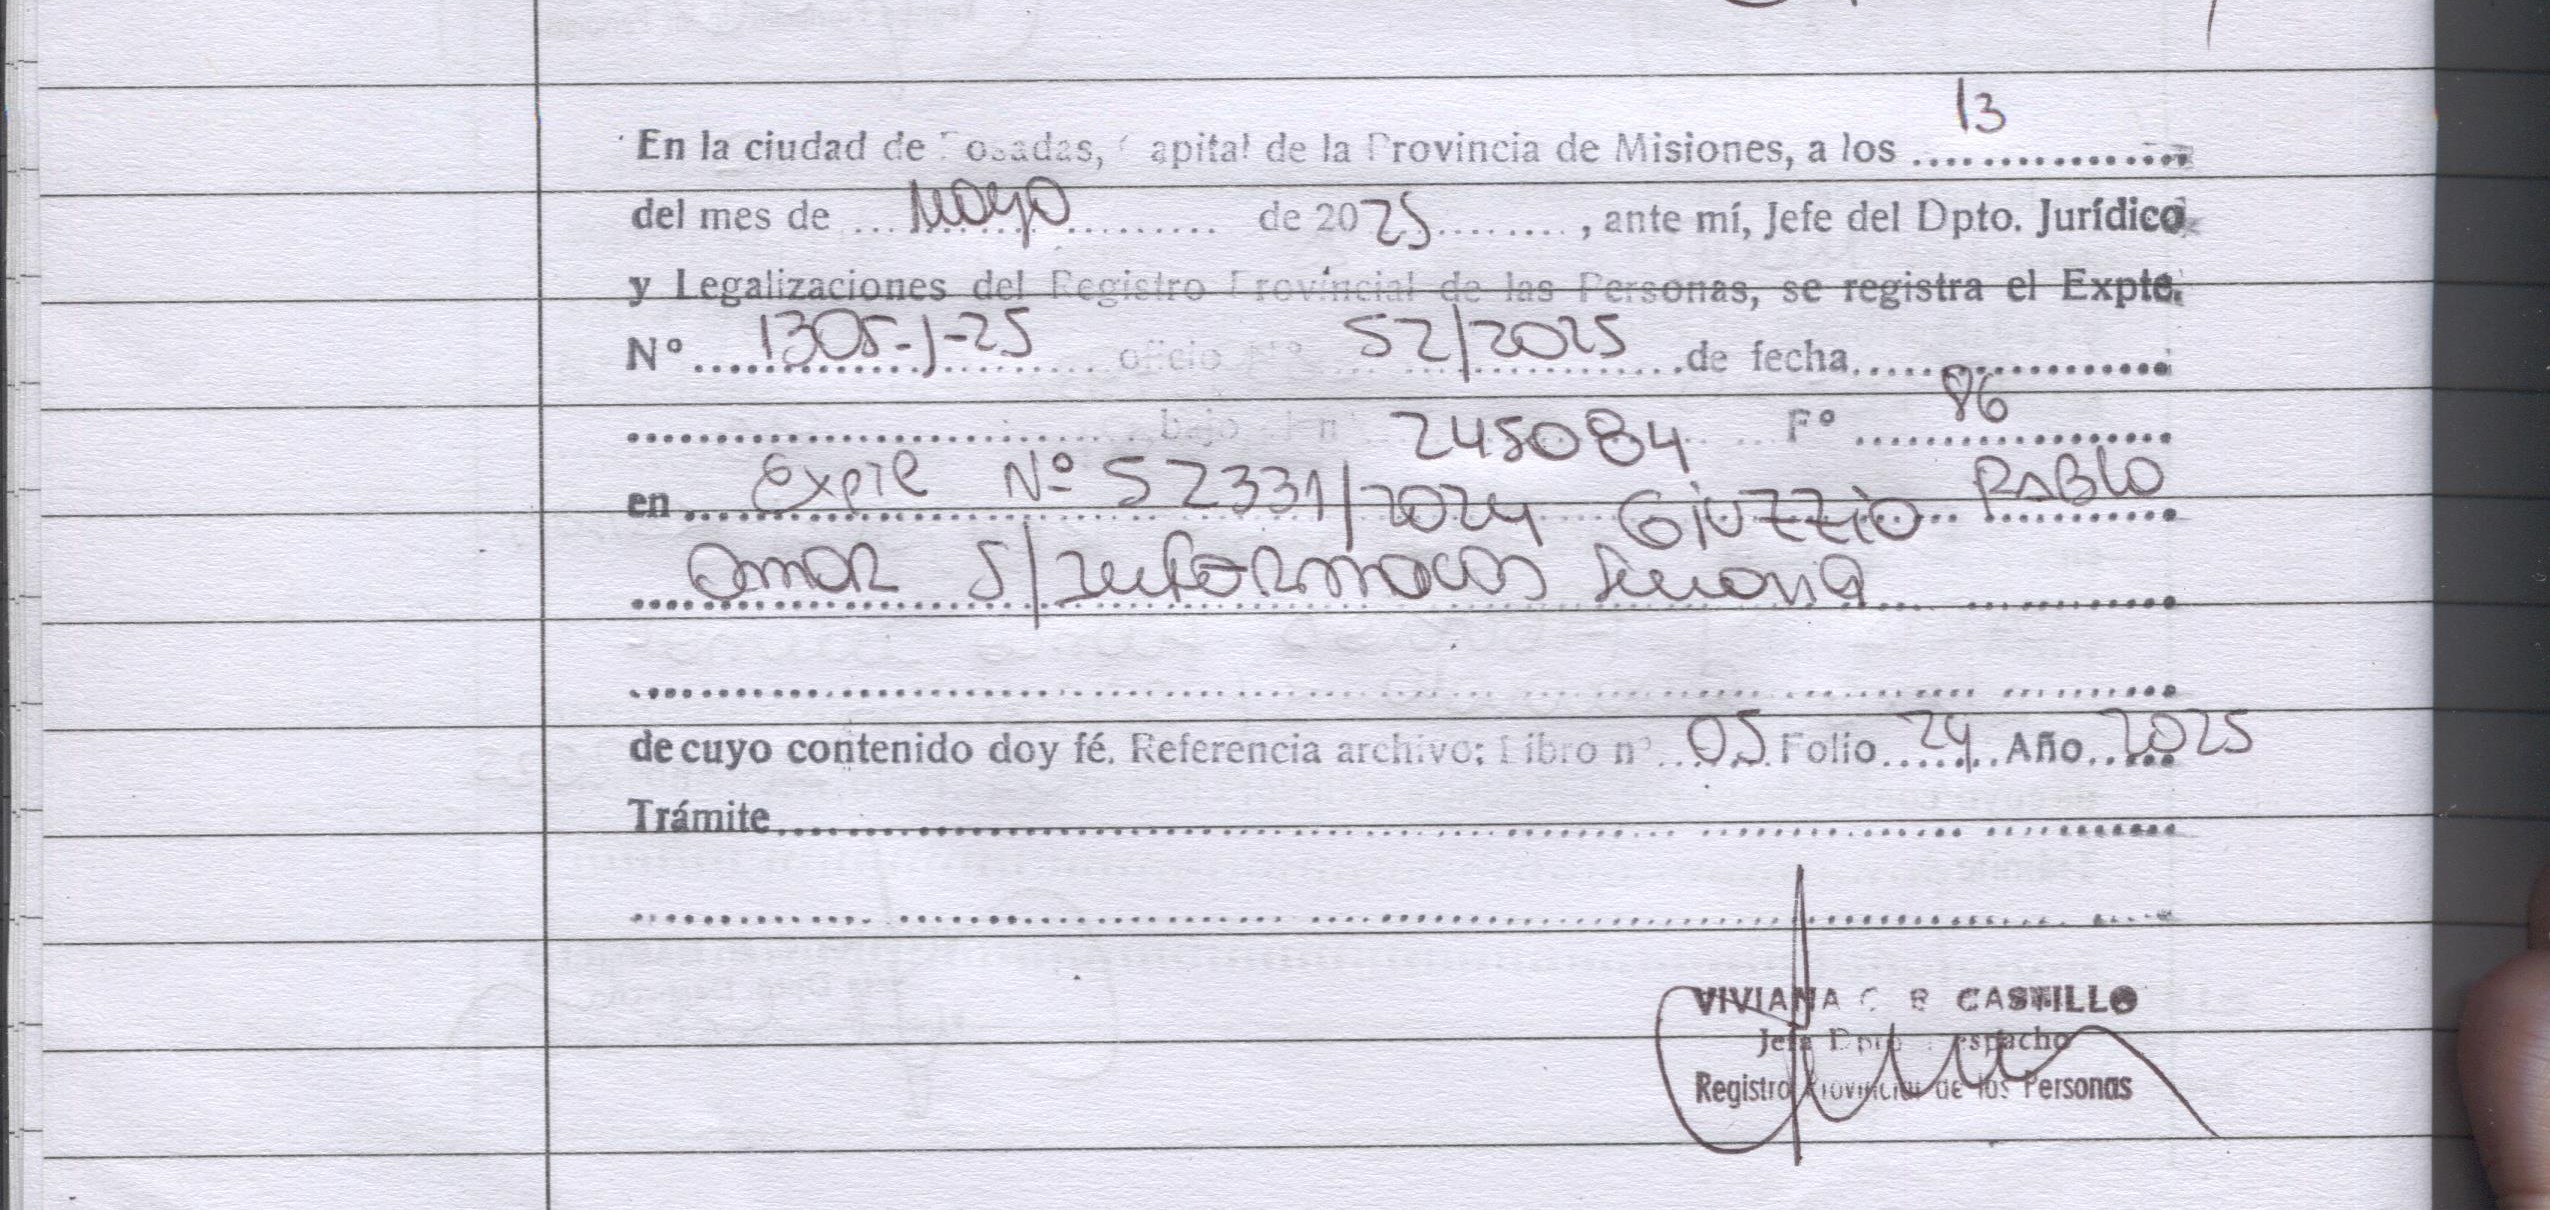 En la ciudad de Posadas, Capital de la Provincia de Misiones, a los 13
del mes de Mayo de 2025, ante mí, Jefe del Dpto. Jurídico
y Legalizaciones del Registro Provincial de las Personas, se registra el Expte.
Nº 1305-J-25 oficio Nº 52/2025 de fecha
bajo el nº 245084 Fº 86
en Expte Nº 52331/2024 Giuzzio Pablo
Omar S/ Sumaria
de cuyo contenido doy fé. Referencia archivo: Libro nº 05 Folio 24 Año 2025
Trámite
VIVIANA CASTILLO
Jefa Dpto Despacho
Registro Provincial de las Personas